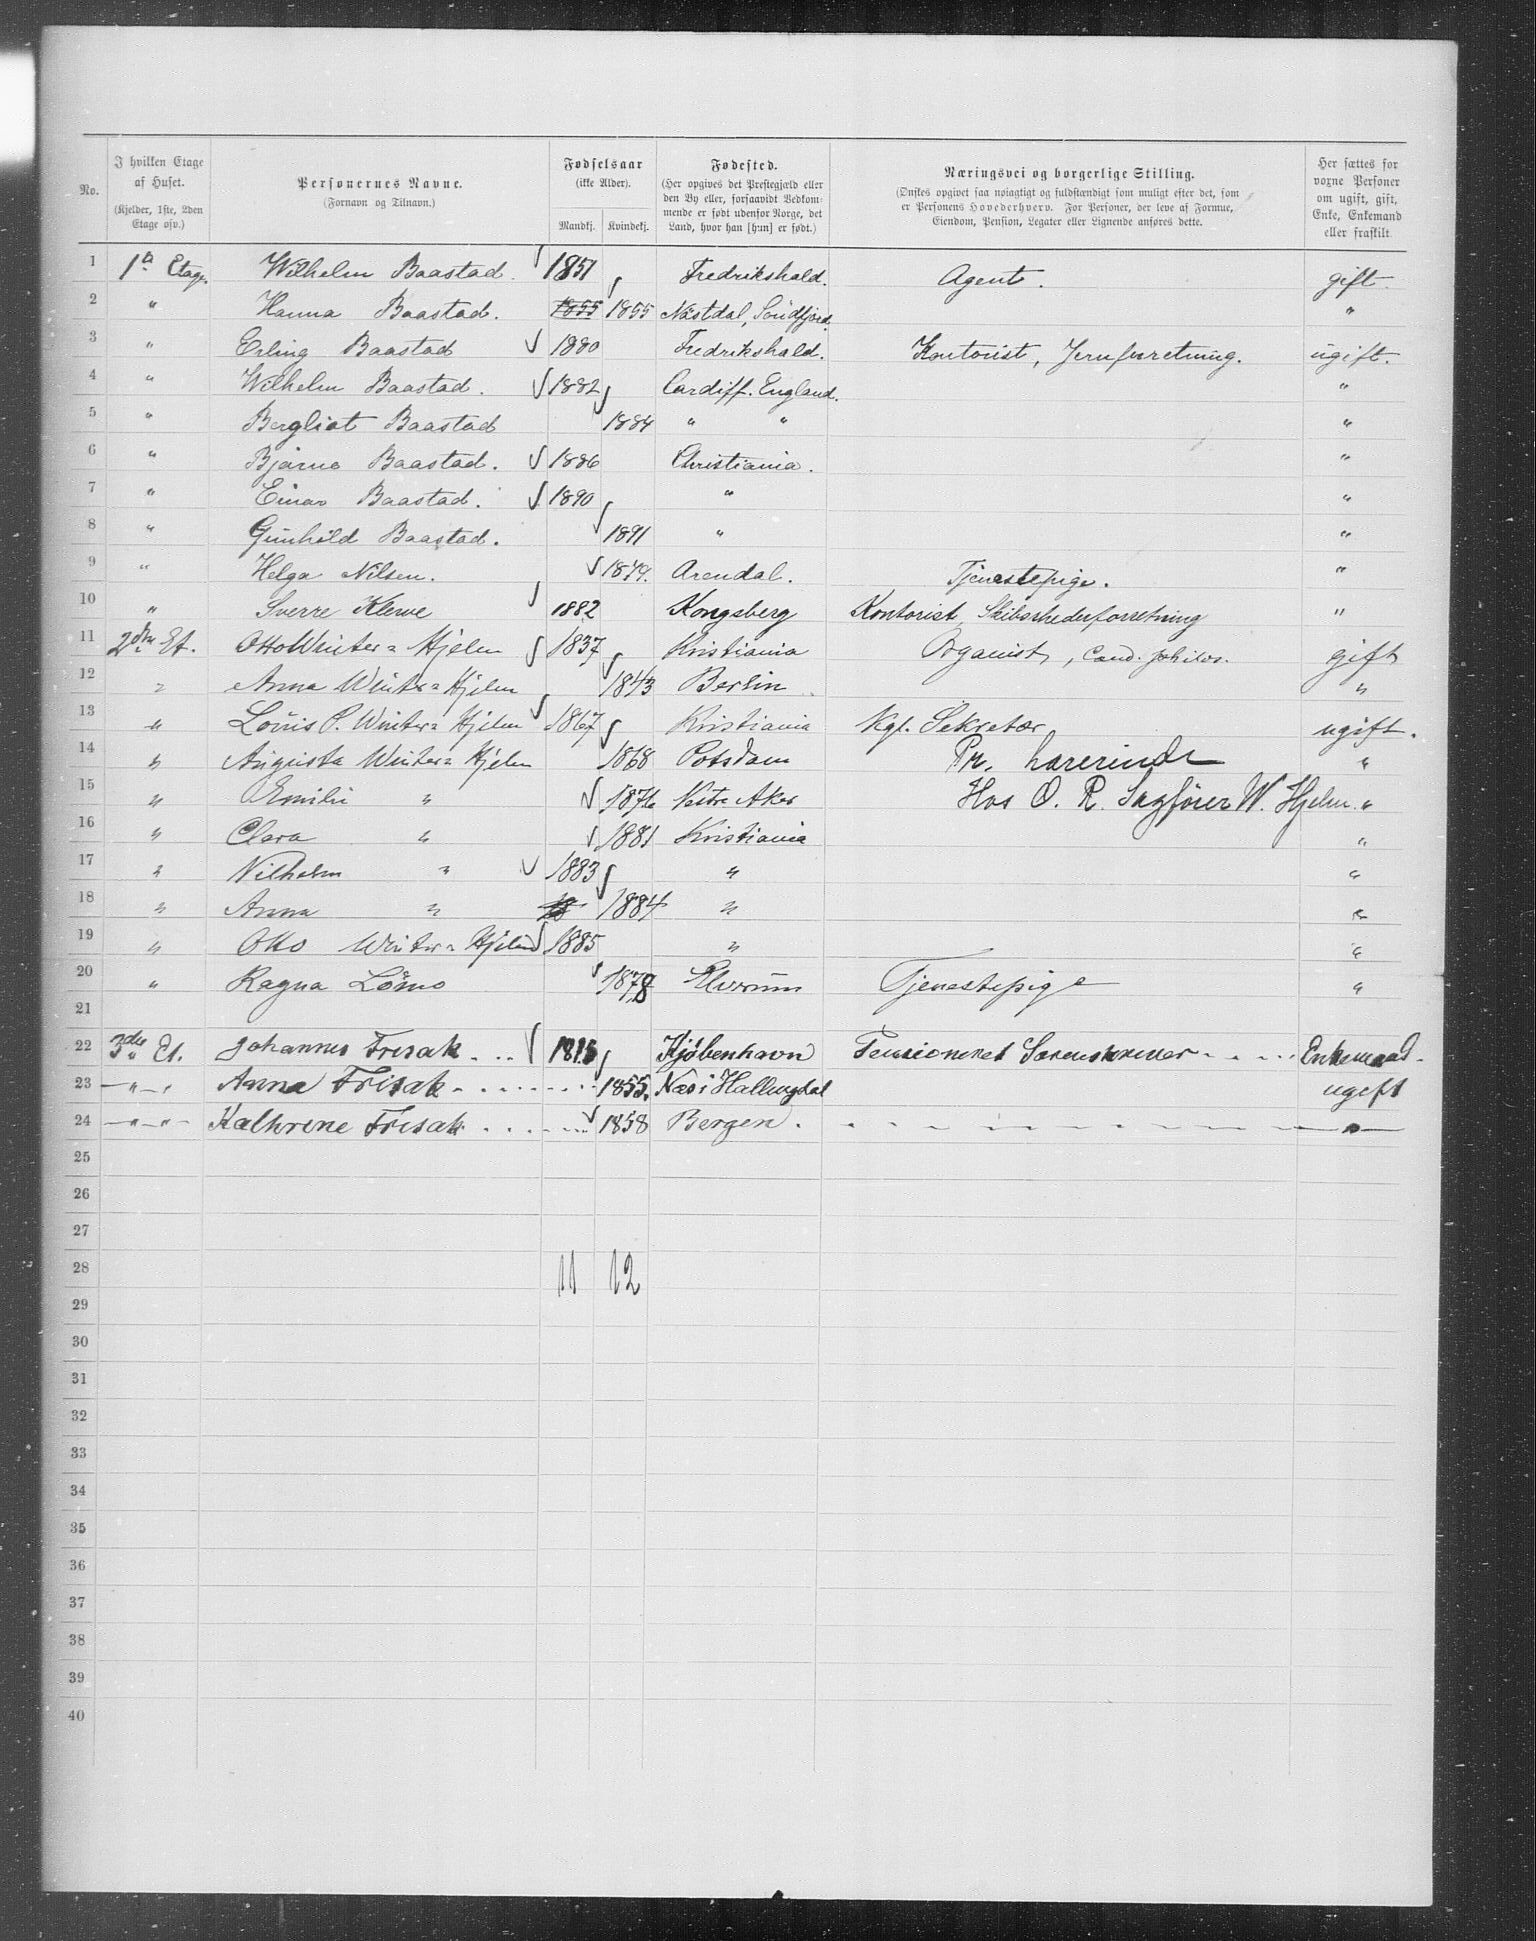 No. | I hvilken Etage af Huset. (Kjelder, 1ste, 2den Etage osv.) | Personernes Navne. (Fornavn og Tilnavn.) | Fødselsaar (ikke Alder). Mandkj. Kvindekj. | Fødested. (Her opgives det Prestegjæld eller den By eller, forsaavidt Vedkommende er født udenfor Norge, det Land, hvor han [hun] er født.) | Næringsvei og borgerlige Stilling. (Ønskes opgivet saa nøiagtigt og fuldstændigt som muligt efter det, som er Personens Hovederhverv. For Personer, der leve af Formue, Eiendom, Pension, Legater eller Lignende anføres dette. | Her sættes for voxne Personer om ugift, gift, Enke, Enkemand eller fraskilt.
1 1ª Etage. Wilhelm Baastad. 1851 Fredrikshald. Agent. gift.
2 " Hanna Baastad. 1855 1855 Nästdal, Söndfjord. "
3 " Erling Baastad 1880 Fredrikshald. Kontorist, Jernforretning. ugift.
4 " Wilhelm Baastad. 1882 Cardiff. England. "
5 " Bergliot Baastad 1884 " " "
6 " Bjarne Baastad. 1886 Christiania. "
7 " Einar Baastad. 1890 " "
8 " Gunhild Baastad. 1891 " "
9 " Helga Nilsen. 1879. Arendal. Tjenestepige. "
10 " Sverre Klewe 1882 Kongsberg Kontorist, Skibsrhederforretning "
11 2den Et. Otto Winter=Hjelm 1837 Kristiania Organist, Cand. philos. gift
12 " Anna Winter=Hjelm 1843 Berlin "
13 " Louis P. Winter=Hjelm 1867 Kristiania Kgl. Sekretær ugift.
14 " Augusta Winter=Hjelm 1868 Potsdam Pr. Lærerinde "
15 " Emilie " 1876 Vestre Aker Hos O. R. Sagfører W. Hjelm. "
16 " Clara " 1881 Kristiania "
17 " Vilhelm " 1883 " "
18 " Anna " 18 1884 " "
19 " Otto Winter=Hjelm 1885 " "
20 " Ragna Lömo 1878 Elverum Tjenestepige "
21
22 3die Et. Johannes Frisak . .. 1815 Kjøbenhavn Pensioneret Sorenskriver - . . . . Enkemand -
23 — " — . Anna Frisak - . . . . . . 1855. Næs i Hallingdal ugift
24 — " — " — Kathrine Frisak . . . . . . . 1858 Bergen . "
25
26
27
28 11 12
29
30
31
32
33
34
35
36
37
38
39
40